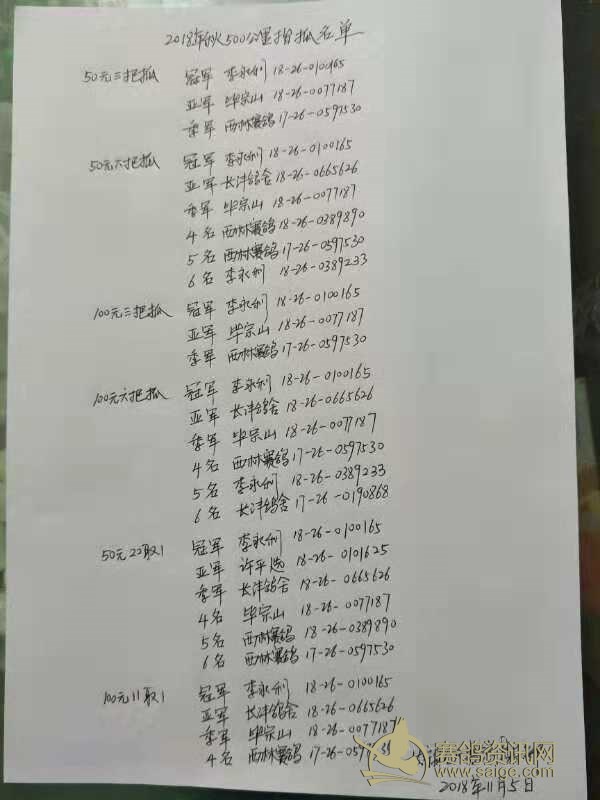 2018年秋500公里指抓名单
50元三把抓 冠军 李永利 18-26-0100165
亚军 毕宗山 18-26-0077187
季军 西林赛鸽 17-26-0597530
50元六把抓 冠军 李永利 18-26-0100165
亚军 长沣鸽舍 18-26-0665626
季军 毕宗山 18-26-0077187
4名 西林赛鸽 18-26-0389890
5名 西林赛鸽 17-26-0597530
6名 李永利 18-26-0389233
100元三把抓 冠军 李永利 18-26-0100165
亚军 毕宗山 18-26-0077187
季军 西林赛鸽 17-26-0597530
100元六把抓 冠军 李永利 18-26-0100165
亚军 长沣鸽舍 18-26-0665626
季军 毕宗山 18-26-0077187
4名 西林赛鸽 17-26-0597530
5名 李永利 18-26-0389233
6名 长沣鸽舍 17-26-0190868
50元20取1 冠军 李永利 18-26-0100165
亚军 许平 18-26-0101625
季军 长沣鸽舍 18-26-0665626
4名 毕宗山 18-26-0077187
5名 西林赛鸽 18-26-0389890
6名 西林赛鸽 17-26-0597530
100元11取1 冠军 李永利 18-26-0100165
亚军 长沣鸽舍 18-26-0665626
季军 毕宗山 18-26-0077187
4名 西林赛鸽 17-26-
赛鸽资讯网
www.saige.com
2018年11月5日